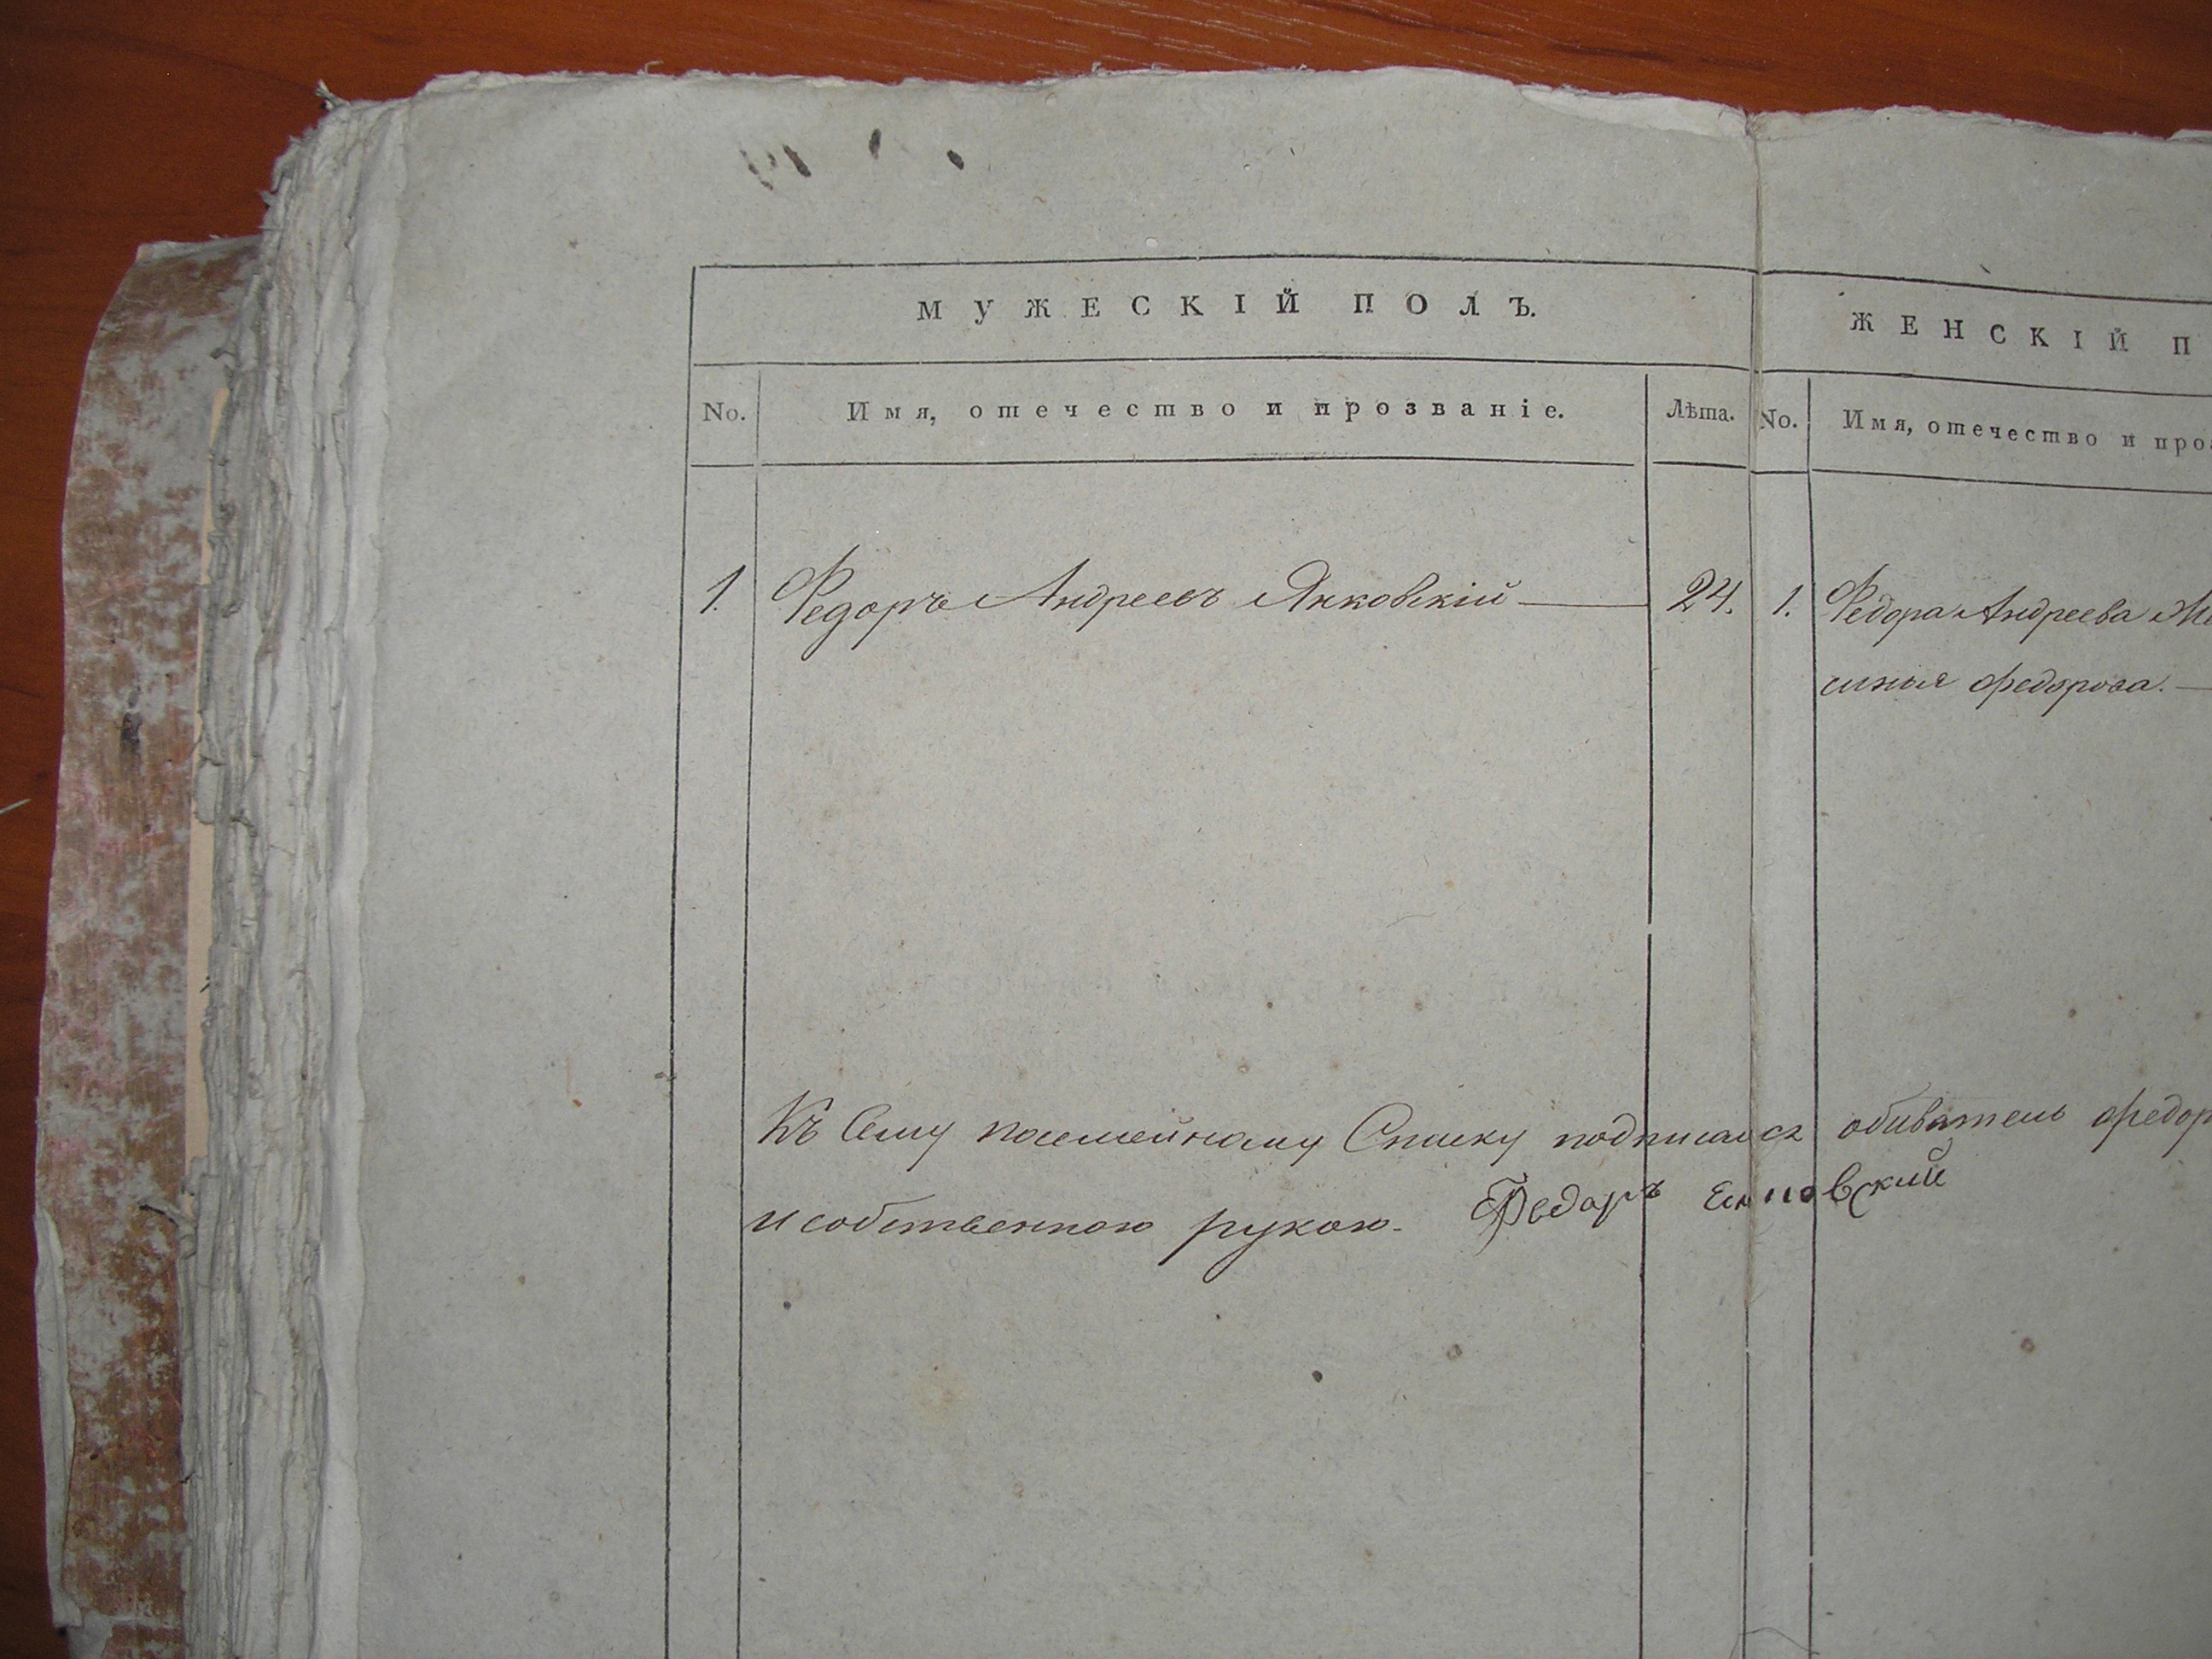 МУЖЕСКІЙ ПОЛЪ.
ЖЕНСКІЙ П
No.
Имя, отечество и прозваніе.
Лѣта.
No.
Имя, отечество и проз
1.
Федоръ Андреевъ Якковскій
24.
1.
Федора Андреева
Федорова.
Къ Сему посемейному Списку подписался обиватель Федор
и собственною рукою. Федаръ